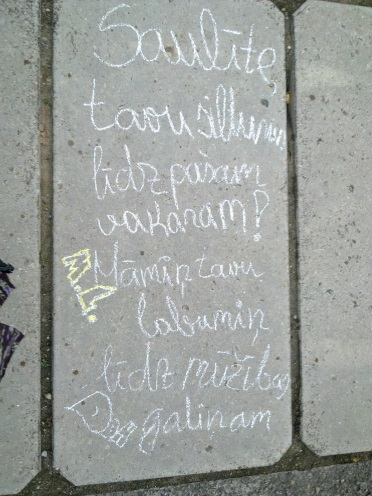 Saulīte,
tavu siltumiņ
līdz pašam
vakaram?
Māmiņ tavu
labumiņ
līdz mūžibas
galiņam